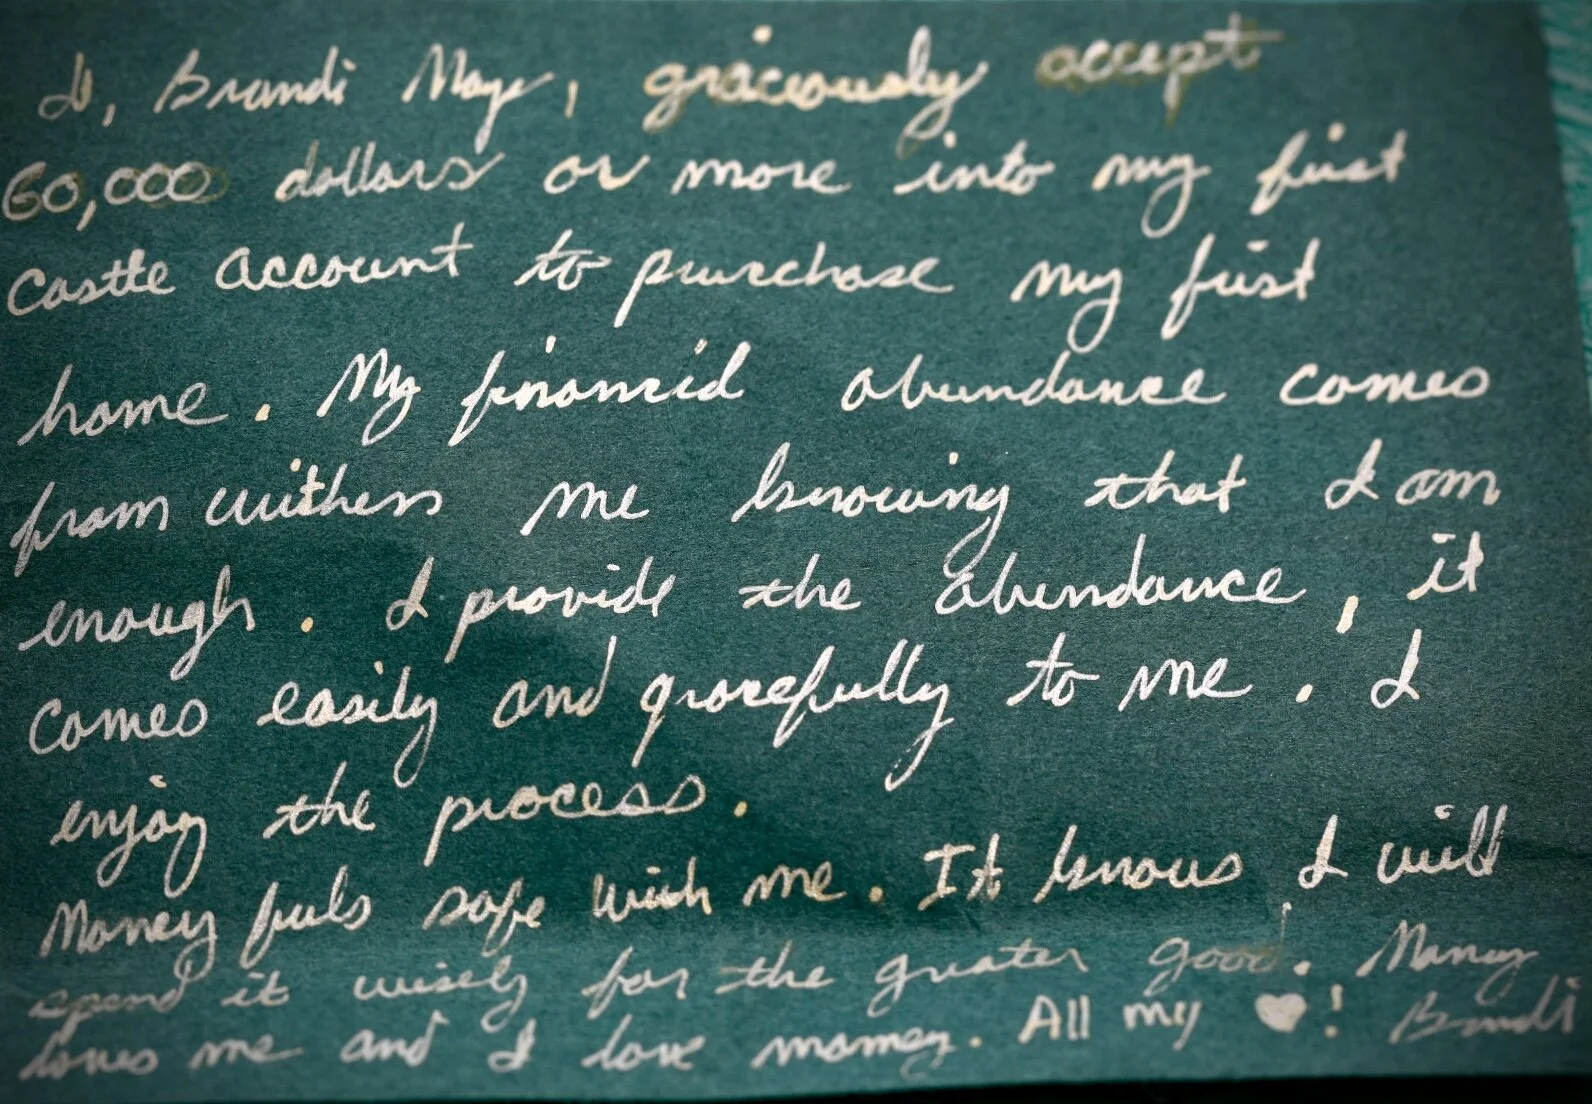 I, Brandi Maye, graciously accept
60,000 dollars or more into my first
Castle account to purchase my first
home. My financial abundance comes
from within me knowing that I am
enough. I provide the abundance, it
comes easily and gracefully to me. I
enjoy the process.
Money feels safe with me. It knows I will
spend it wisely for the greater good. Money
loves me and I love money. All my ♥! Brandi